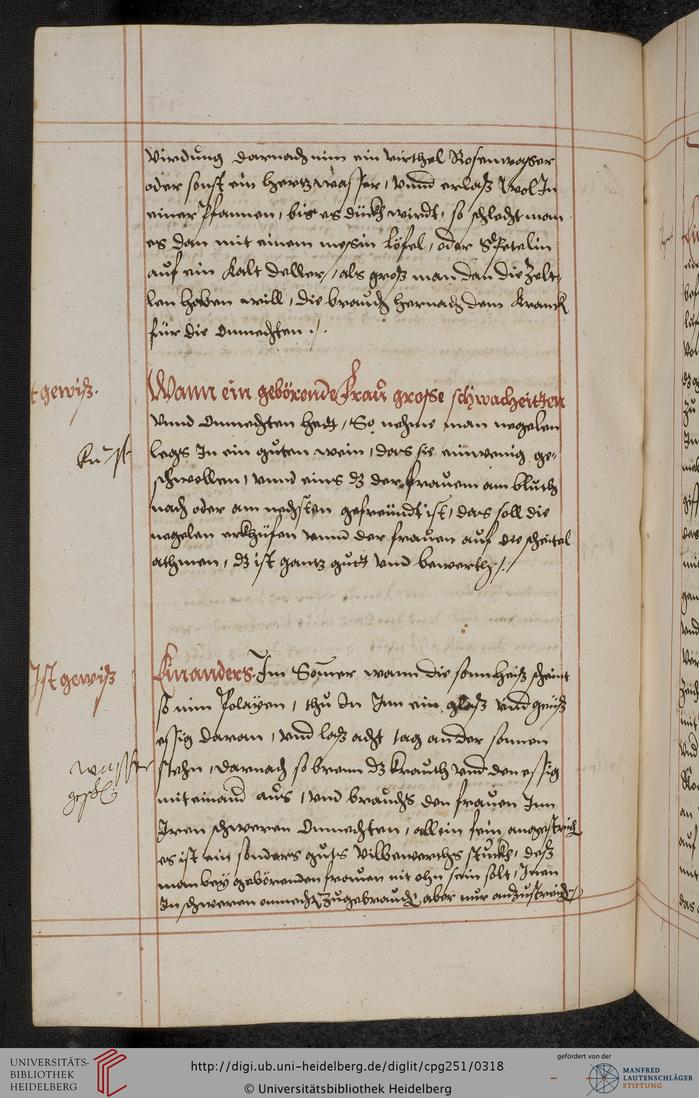 virdung darnach nim ein virthel Rosenwasser
oder sonst ein hertzwasser, vnnd erlaß wol In
einer Pfannen, bis es dückh wirdt, so schlecht man
es dan mit einem mesin löfel, oder Spetelin
auf ein kalt deller, als groß man dan die Zelt,,
len haben will, die brauch hernach dem kranck
für die onmechten ./.
t gewiß.
Wann ein gebörende Frau grosse schwacheitten
vnnd onmechten hedt, So nehme man negelen
legs In ein guten wein, das sie ein wenig ge,,
schwellen, vnnd eins dz der frauwen am bluth
nach oder am nechsten gefreündt ist, das soll die
negelen erkhüfen vnnd der frauen auf die scheitel
athmen, dz ist gantz gudt vnd bewerth ./.
Ist gewiß
Ein anders. Im Somer wann die sonn heiß scheint
so nim Polayen, thu In Inn ein glaß vnd geüß
essig daran, vnd laß acht tag an der sonnen
wasser
stehn, darnach so brenn dz krauth vnd den essig
mit einand aus, vnd brauchs den frauen Inn
Iren schweren Onmechten, allein sein angestrich
es ist ein sonders guts vilbewerths stückh, deß
man bey gebörenden frauen nit ohn sein solt, Inen
In schweren onmecht zugebrauch, aber nur anzustreich
UNIVERSITÄTS-
BIBLIOTHEK
HEIDELBERG
http://digi.ub.uni-heidelberg.de/diglit/cpg251/0318
© Universitätsbibliothek Heidelberg
gefördert von der
MANFRED
LAUTENSCHLÄGER
STIFTUNG